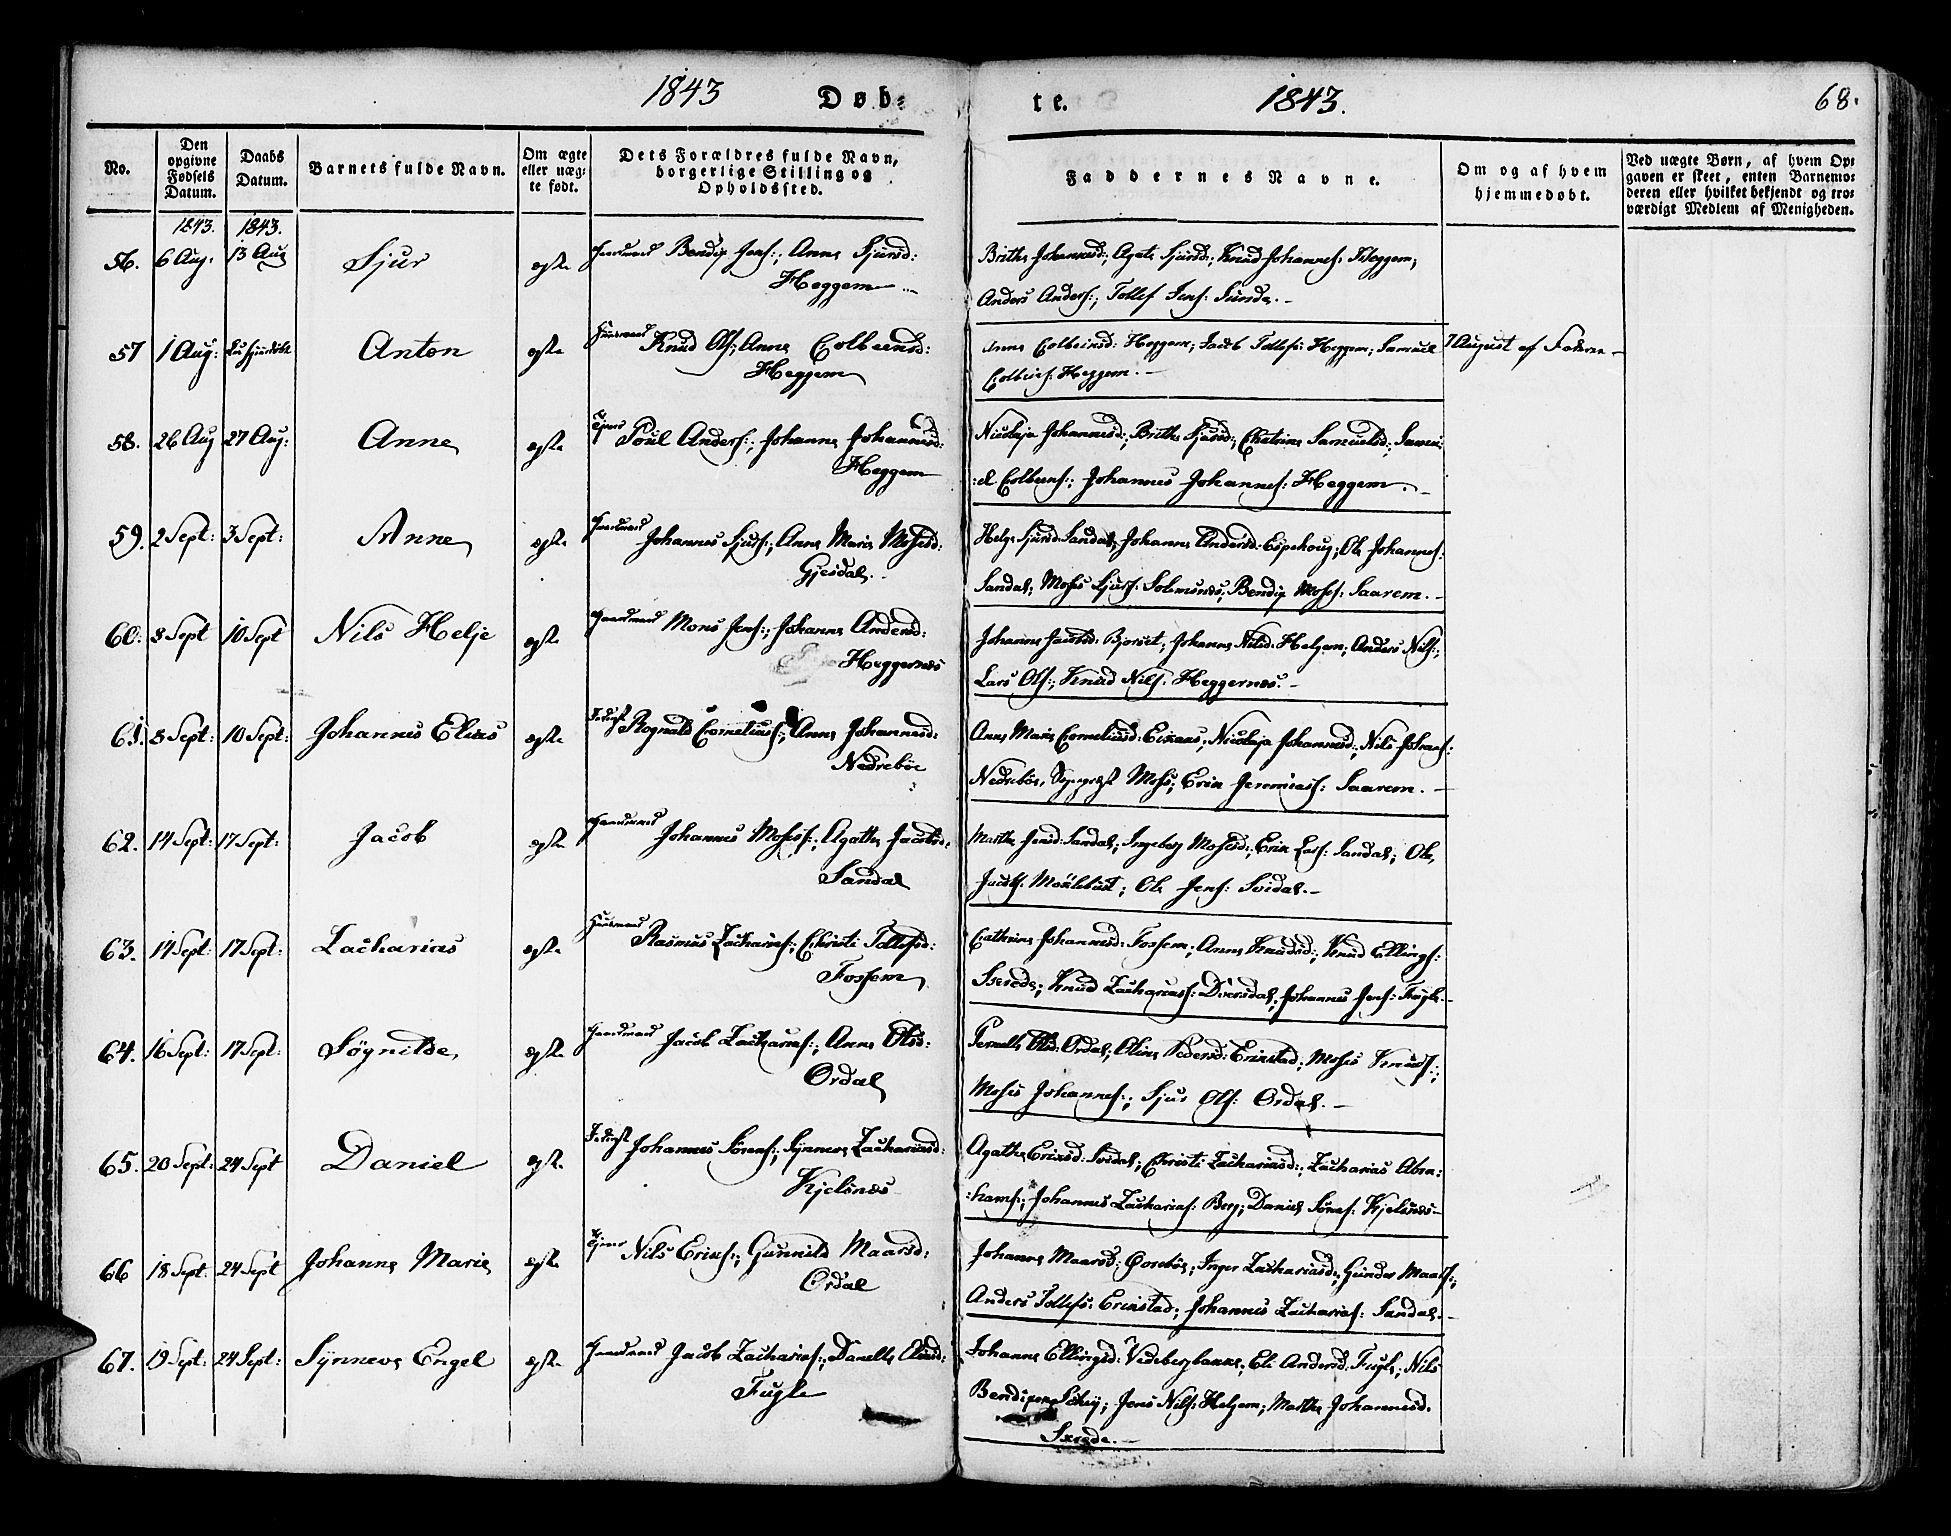 1843 Døb=
te. 1843. 68.
No.
Den opgivne Fødsels Datum.
Daabs Datum.
Barnets fulde Navn.
Om ægte eller uæg= te født.
Dets Forældres fulde Navn, borgerlige Stilling og Opholdssted.
Faddernes Navne.
Om og af hvem hjemmedøbt.
Ved uægte Børn, af hvem Op= gaven er skeet, enten Barnemo= deren eller hvilket bekjendt og tro= værdigt Medlem af Menigheden.
1843. 1843.
56. 6 Aug. 13 Aug Sjur egte Gaardmand Bendix Jens:, Anna Sjursd:
Heggem
Brithe Johannesd:, Agate Sjursd:, Knud Johannes: Heggem,
Anders Anders:, Tollef Jens: Sunde.
57 1 Aug: Anton egte Huusmand Knud Ols:, Anna Colbeinsd:
Heggem
Anna Colbeinsd: Heggem; Jacob Tollefs: Heggem; Samuel
Colbeins: Heggem.
7 August af Faderen
58. 26 Aug 27 Aug: Anne egte Poul Anders:, Johanne Johannesd:
Heggem
Nicolaja Johannesd:, Brithe Sjursd:, Chatrine Samuelsd:, Samu:
:el Colbeins:, Johannes Johannes: Heggem.
59. 2 Sept: 3 Sept: Anne egte Gaardmand Johannes Sjurs:, Anne Marie Mosesd:
Gjesdal.
Helge Sjursd: Sandal, Johanne Andersd: Espehoug; Ole Johannes:
Sandal, Moses Sjurs: Solemsnes, Bendix Moses: Saarem.
60. 8 Sept 10 Sept Nils Helje egte Gaardmand Mons Jens:, Johanne Andersd:
Heggernes
Johanne Jacobsd: Bjorset, Johanne Nilsd: Helgem; Anders Nils:,
Lars Ols:, Knud Nils: Heggernes.
61. 8 Sept: 10 Sept: Johannes Elias egte Rognald Cornelius:, Anne Johannesd:
Nedrebøe
Anne Marie Corneliusd: Eikaas, Nicolaja Johannesd:, Nils Johans:
Nedrebøe, Moses, Erik Jeremias: Saarem.
62. 14 Sept: 17 Sept: Jacob egte Gaardmand Johannes Moses:, Agathe Jacobsd:
Sandal
Marthe Jensd: Sandal, Ingeborg Mosesd:, Erik Lars: Sandal, Ole
Jacobs: Moskleivst; Ole Jens: Svidal.
63. 14 Sept: 17 Sept: Zacharias egte Huusmand Rasmus Zacharias:, Christi Tollefsd:
Fossem
Cathrine Johannesd: Fossem, Anne Knudsd:, Knud Ellings:
Skrede, Knud Zacharias: Dvergsdal, Johannes Jens: Fugle.
64. 16 Sept: 17 Sept: Søgnilde egte Gaardmand Jacob Zacharias:, Anne Olsd:
Ordal
Pernelle Olsd: Ordal, Oline Pedersd: Erikstad, Moses Knuds:,
Moses Johannes:, Sjur Ols: Ordal.
65. 20 Sept: 24 Sept Daniel egte Johannes Sørens:, Synneve Zachariasd:
Kjelsnes
Agathe Eriksd: Svidal, Christi Zachariasd:, Zacharias Abra:
:hams:, Johannes Zacharias: Berg, Daniel Sørens: Kjelsnes
66 18 Sept: 24 Sept Johanne Marie egte Nils Eriks:, Gunnild Maarsd:
Ordal
Johanne Maarsd: Qvorebøe, Inger Zachariasd:, Gunder Maars:,
Anders Tollefs: Erikstad, Johannes Zacharias: Sandal.
67. 19 Sept: 24 Sept: Synneve Engel egte Gaardmand Jacob Zacharias:, Danelle Olsd:
Fugle
Johanne Ellingsd: Videbergbakke, Eli Andersd: Fugle, Nils
Bendixen, Jens Nils: Helgem; Marthe Johannesd:
Skrede.